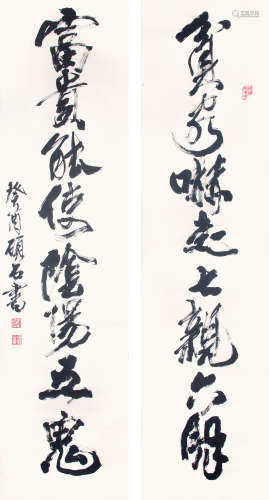 貧窮嚇走七親六眷
富貴能使陰陽五鬼
癸酉碩石書